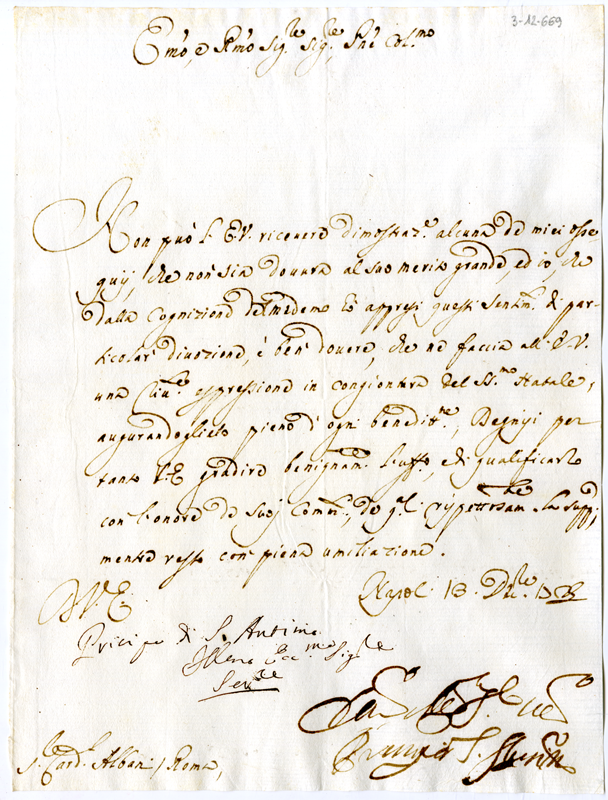 3-12-669
Em̃o, e Rm̃o Sig.re Sig.re Prñe Col.mo
Non può l'E.V. ricevere dimostraz.e alcuna de miei osse-
quij, che non sia dovuta al suo merito grande, ed io, che
dalla cognizione del medemo hò appresi questi sentim.ti di par-
ticolar' divozione, è ben' dovere, che ne faccia all'E.V.
una espressione in congiontura del SS.mo Natale,
augurandoglielo pieno d'ogni benedit.ne, Degnisi per
tanto V.E. gradire benignam.te l'uff.o, e di qualificarlo
con l'onore de suoi Com.di, de q.li rispettosam.te la supp.co
mentre resto con piena umiliazione.
D V.E.
Napoli 18 D.bre
Principe di S. Antimo
Sig.re
Ser.re
S.r Card.l Albani / Roma,